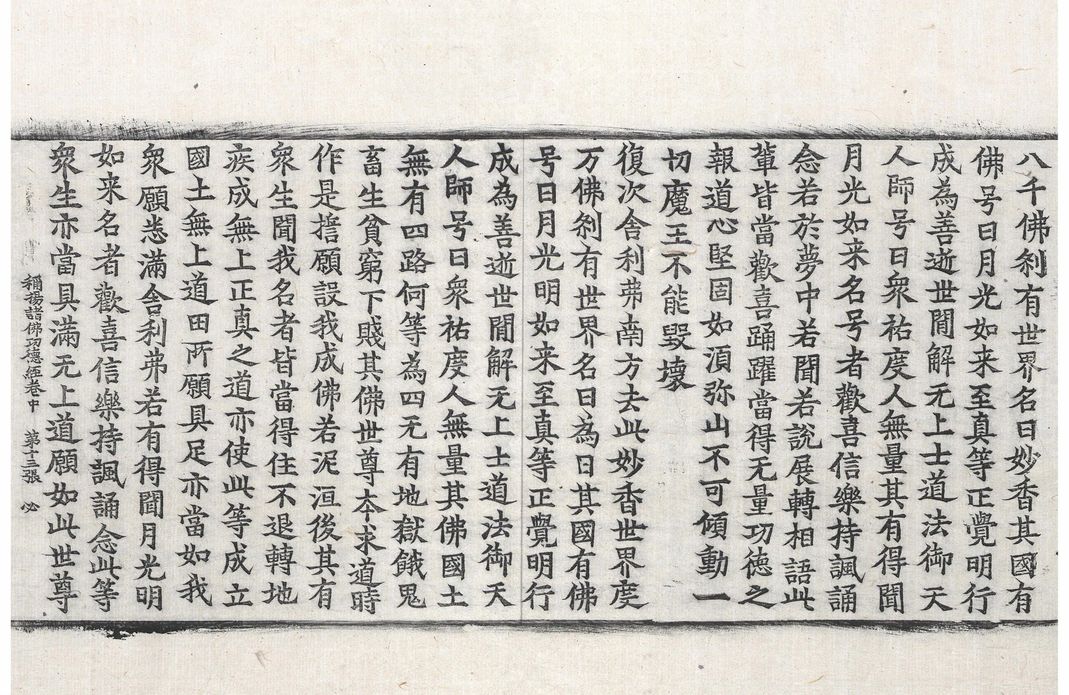 八千佛刹有世界名曰妙香其國有
佛号曰月光如来至真等正覺明行
成為善逝世間解无上士道法御天
人師号曰衆祐度人無量其有得聞
月光如来名号者歡喜信樂持諷誦
念若於夢中若聞若說展轉相語此
輩皆當歡喜踊躍當得无量功德之
報道心堅固如湏弥山不可傾動一
切魔王不能毀壞
復次舍利弗南方去此妙香世界度
万佛刹有世界名曰為日其國有佛
号曰月光明如来至真等正覺明行
成為善逝世間解无上士道法御天
人師号曰衆祐度人無量其佛國土
無有四路何等為四无有地獄餓鬼
畜生貧窮下賤其佛世尊夲求道時
作是擔願設我成佛若泥洹後其有
衆生聞我名者皆當得住不退轉地
疾成無上正真之道亦使此等成立
國土無上道田所願具足亦當如我
衆願悉滿舍利弗若有得聞月光明
如来名者歡喜信樂持諷誦念此等
衆生亦當具滿无上道願如此世尊
稱揚諸佛功德經卷中 第十三張 必